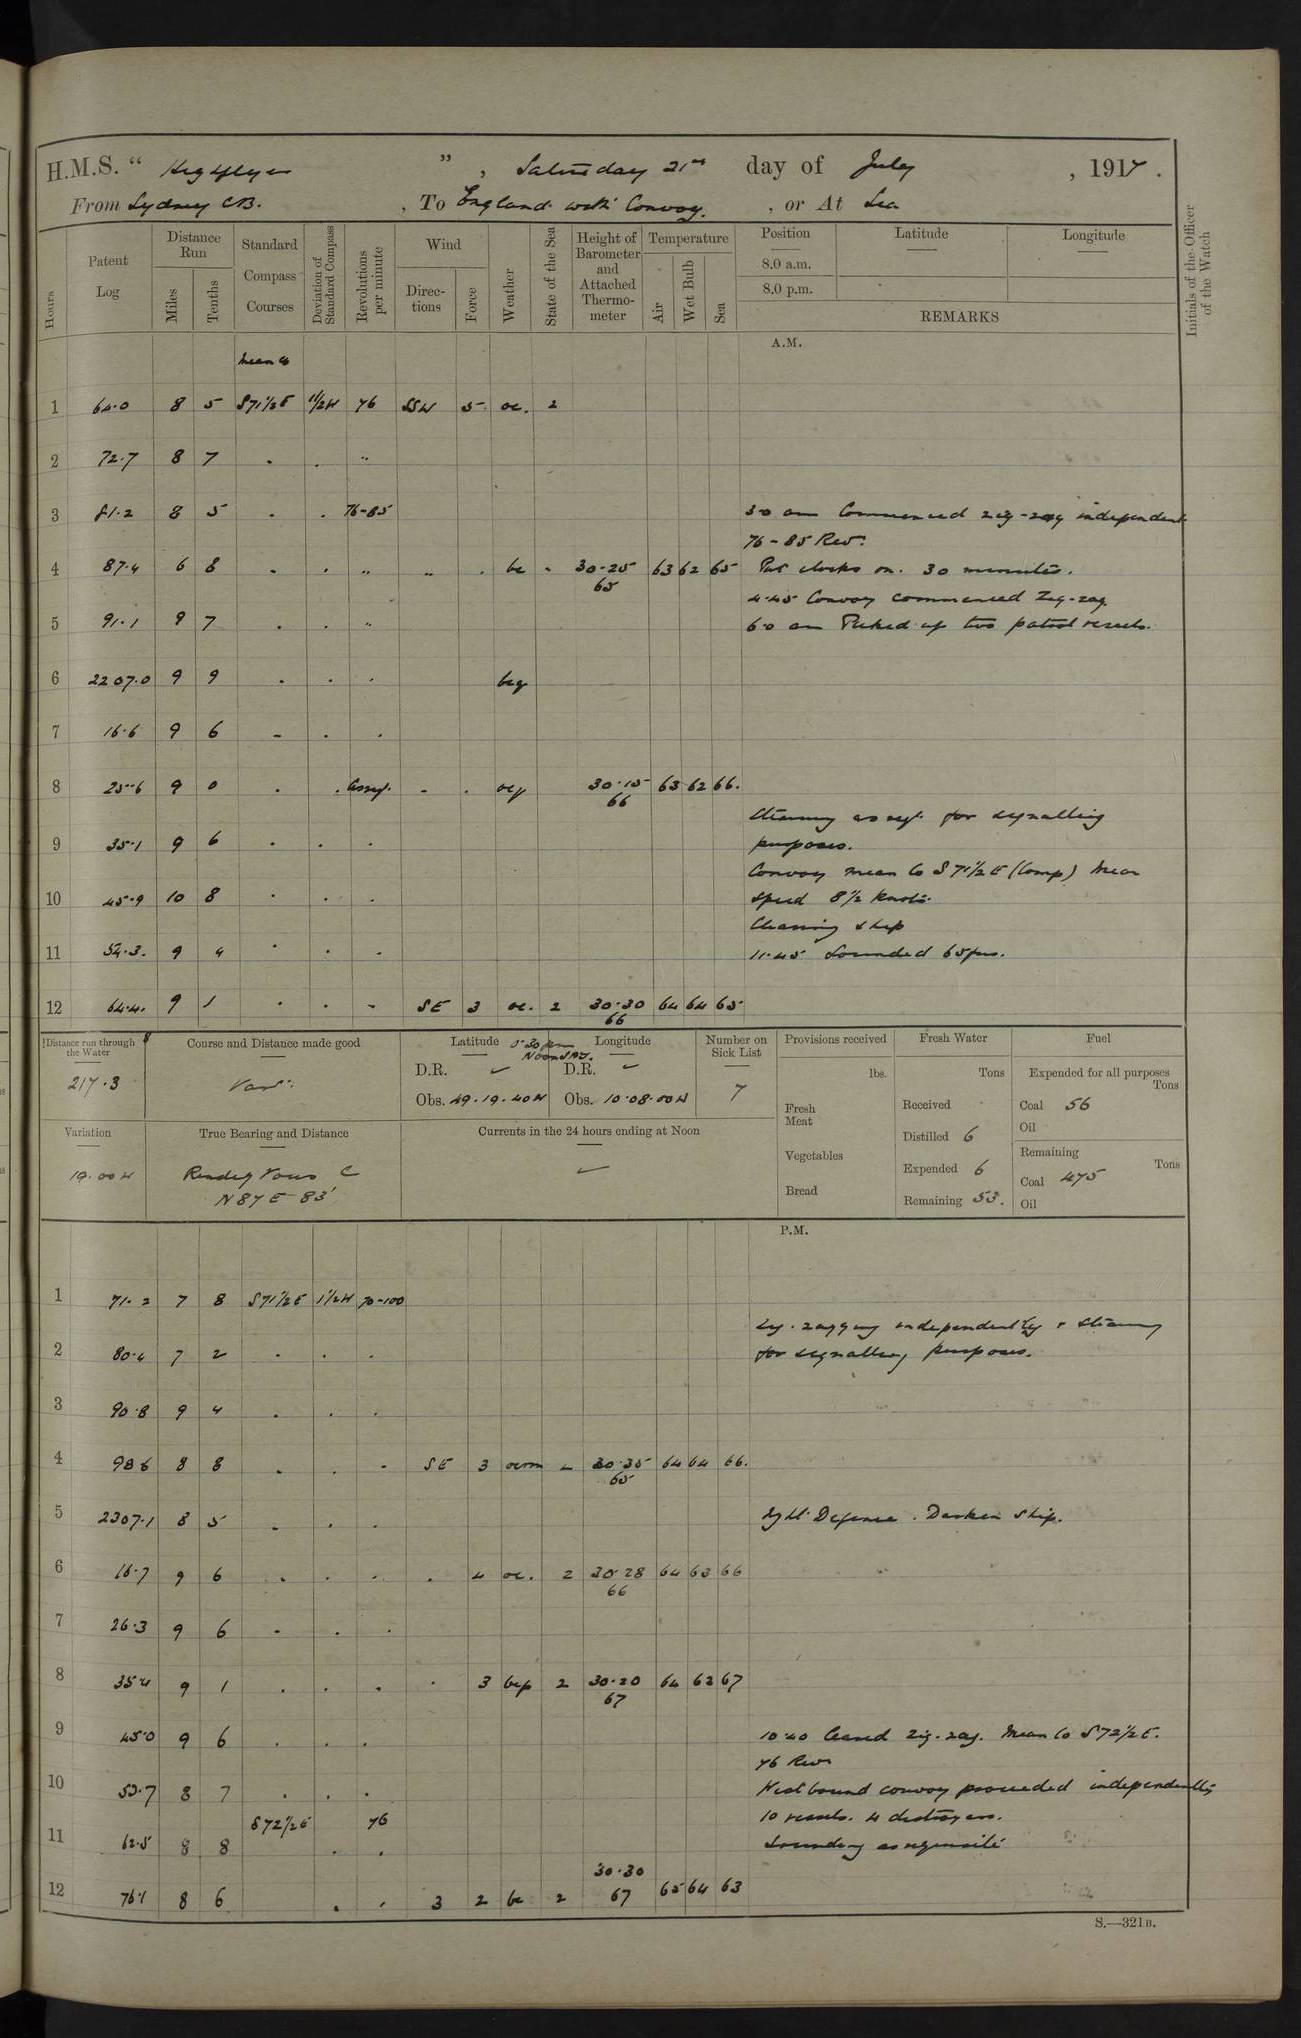 H.M.S. " Highflyer ", Saturday 21st day of July, 1917.
From Sydney CB., To England with Convoy., or At Sea
Hours
Patent Log
Distance Run
Miles
Tenths
Standard Compass Courses
Deviation of Standard Compass
Revolutions per minute
Wind
Directions
Force
Weather
State of the Sea
Height of Barometer and Attached Thermometer
Temperature
Air
Wet Bulb
Sea
Position
Latitude
Longitude
8.0 a.m.
8.0 p.m.
REMARKS
Initials of the Officer of the Watch
A.M.
Mean Co
1 64.0 8 5 S71½E 1½W 76 SSW 5 oc. 2
2 72.7 8 7 . . "
3 81.2 8 5 . . 76-85 3.0 am Commenced zig-zag independent
76-85 Revs.
4 87.4 6 8 . . " " . bc " 30.25 63 62 65 Put clocks on. 30 minutes.
65
4.45 Convoy commenced Zig-zag
5 91.1 9 7 . . " 6.0 am Picked up two patrol vessels.
6 2207.0 9 9 . . . bcq
7 16.6 9 6 - . .
8 25.6 9 0 . . As reqd. - . ocq 30.15 63 62 66.
66
Steaming as reqd. for signalling
9 35.1 9 6 . . . purposes.
Convoy mean Co S71½E (Comp) Mean
10 45.9 10 8 . . . speed 8½ knots.
Cleaning ship
11 54.3. 9 4 . . . 11.45 Sounded 65 fms.
12 64.4. 9 1 . . - SE 3 oc. 2 30.30 64 64 65
66
Distance run through the Water
217.3
Course and Distance made good
Vars:
Latitude
Longitude
D.R.
D.R.
Obs. 49.19.40N
Obs. 10.08.00W
Number on Sick List
7
Provisions received
lbs.
Fresh Meat
Vegetables
Bread
Fresh Water
Tons
Received
Distilled 6
Expended 6
Remaining 53.
Fuel
Expended for all purposes
Tons
Coal 56
Oil
Remaining
Tons
Coal 475
Oil
Variation
19.00W
True Bearing and Distance
Rendez Vous C
N87E 83'
Currents in the 24 hours ending at Noon
P.M.
1 71.2 7 8 S71½E 1½W 70-100
Zig-zagging independently & steaming
2 80.4 7 2 . . . for signalling purposes.
3 90.8 9 4 . . .
4 98.6 8 8 . . - SE 3 ocm 30.35 64 64 66.
65
5 2307.1 8 5 . . . Night Defence. Darken Ship.
6 16.7 9 6 . . . . 4 oc. 2 30.28 64 63 66
66
7 26.3 9 6 - . .
8 35.4 9 1 . . . . 3 bcp 2 30.20 64 62 67
67
9 45.0 9 6 . . . 10.40 Ceased Zig-zag. Mean Co S72½E.
76 Revs
10 53.7 8 7 . . . West bound convoy proceeded independently
S72½E 76 10 vessels. 4 destroyers.
11 62.5 8 8 . . Sounding as requisite
30.30
12 76.1 8 6 . . 3 2 bc 2 67 65 64 63
S.—321B.